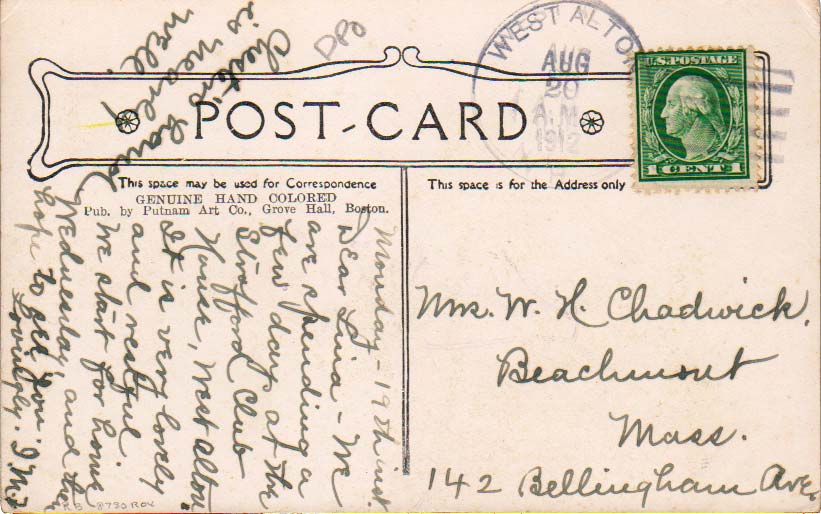 POST-CARD
This space may be used for Correspondence
GENUINE HAND COLORED
Pub. by Putnam Art Co., Grove Hall, Boston.
This space is for the Address only
WEST ALTON
AUG
20
A.M.
1912
U.S. POSTAGE
1 CENT 1
DPO
Monday - 19th inst.
Dear Lina - We
are spending a
few days at the
Strafford Club
House, West Alton.
It is very lovely
and restful.
We start for home
Wednesday, and then
hope to see you.
Lovingly.
Chester's hand
is nearly
well.
Mrs. W. H. Chadwick,
Beachmont
Mass.
142 Bellingham Ave.